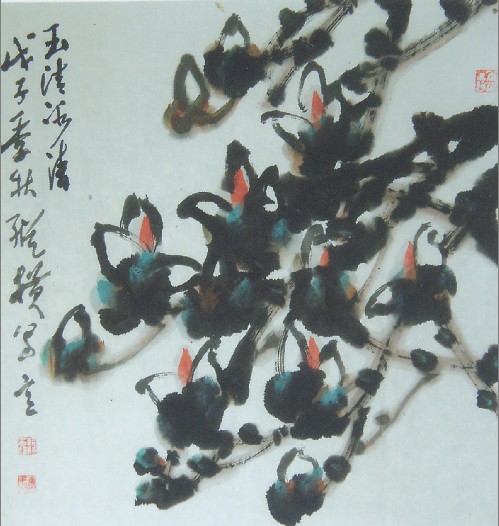 玉洁冰清
戊子季秋縱横写意